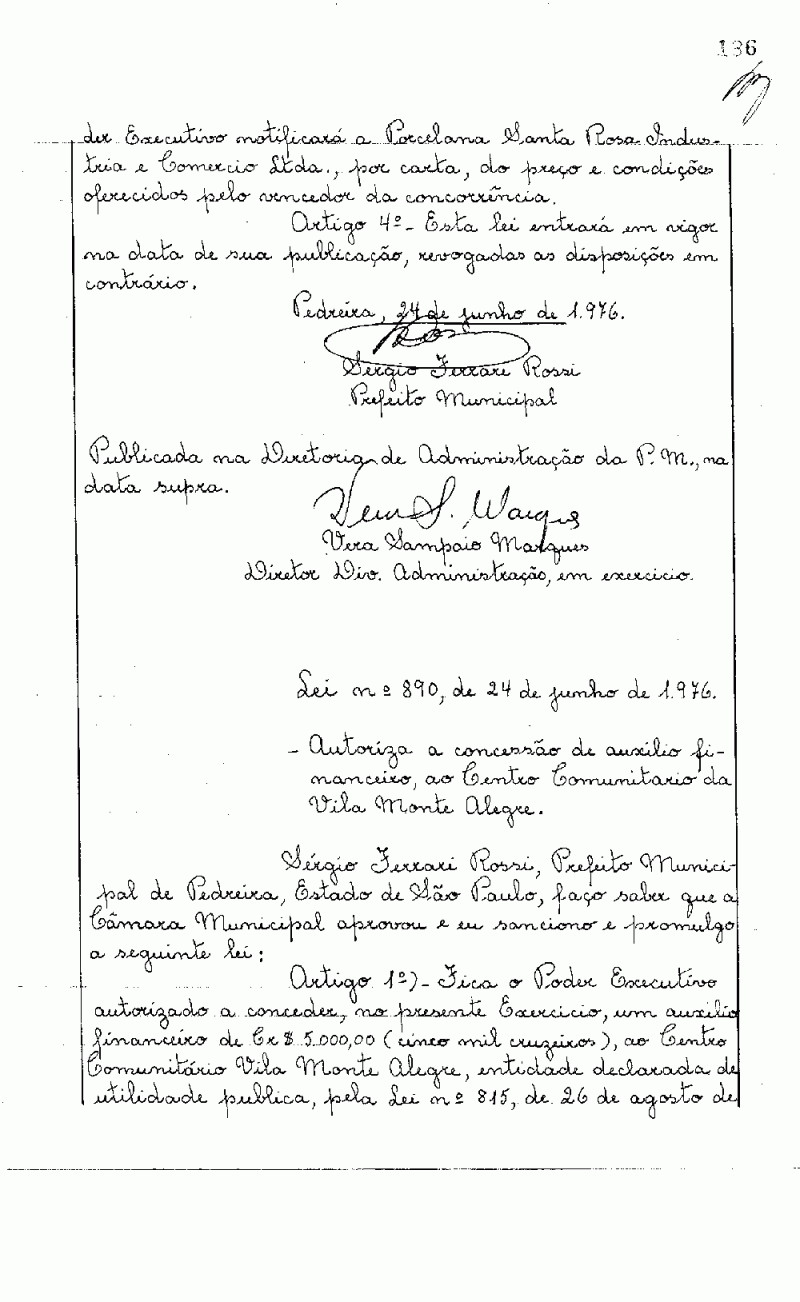 136
der Executivo notificará a Porcelana Santa Rosa Indus-
tria e Comercio Ltda., por carta, do preço e condições
oferecidos pelo vencedor da concorrência.
Artigo 4º- Esta lei entrará em vigor
na data de sua publicação, revogadas as disposições em
contrário.
Pedreira, 24 de junho de 1.976.
Rossi
Sérgio Ferrari Rossi
Prefeito Municipal
Publicada na Diretoria de Administração da P.M., na
data supra.
Vera S. Marques
Vera Sampaio Marques
Diretor Div. Administração, em exercicio.
Lei nº 890, de 24 de junho de 1.976.
- Autoriza a concessão de auxilio fi-
nanceiro, ao Centro Comunitario da
Vila Monte Alegre.
Sérgio Ferrari Rossi, Prefeito Munici-
pal de Pedreira, Estado de São Paulo, faço saber que a
Câmara Municipal aprovou e eu sanciono e promulgo
a seguinte lei:
Artigo 1º)- Fica o Poder Executivo
autorizado a conceder, no presente Exercicio, um auxilio
financeiro de Cr$ 5.000,00 (cinco mil cruzeiros), ao Centro
Comunitário Vila Monte Alegre, entidade declarada de
utilidade publica, pela Lei nº 815, de 26 de agosto de